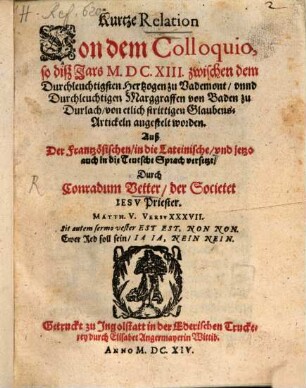 H. Ref. 620
Kurtze Relation
Von dem Colloquio,
so diß Jars M. DC. XIII. zwischen dem
Durchleuchtigsten Hertzogen zu Vademont / vnnd
Durchleuchtigen Marggraffen von Baden zu
Durlach / von etlich strittigen Glaubens-
Artickeln angestelt worden.
Auß
Der Frantzösischen / in die Lateinische / vnd jetzo
auch in die Teutsche Sprach versetzt /
Durch
Conradum Vetter / der Societet
R
IESV Priester.
MATTH. V. VERSV XXXVII.
Sit autem sermo vester EST EST, NON NON.
Ewer Red soll sein / IA IA, NEIN NEIN.
Getruckt zu Ingolstatt in der Ederischen Trucke-
rey durch Elisabet Angermayerin Wittib.
ANNO M. DC. XIV.